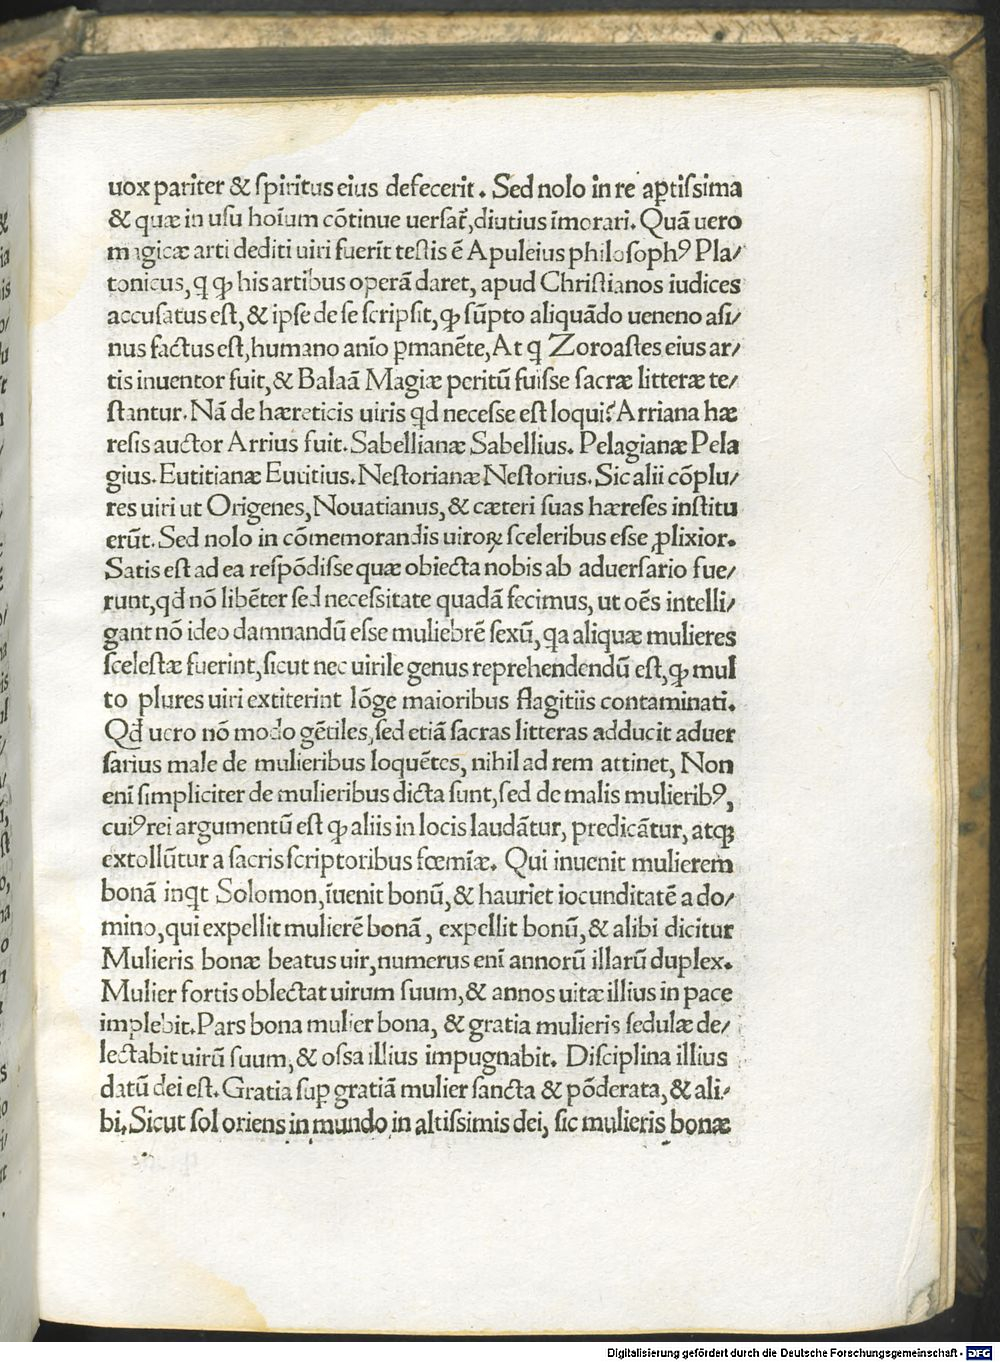 uox pariter & ſpiritus eius defecerit. Sed nolo in re aꝑtiſſima
& quæ in uſu hoīum cōtinue uerſat᷑, diutius īmorari. Quā uero
magicæ arti dediti uiri fuerīt teſtis ē Apuleius philoſophꝰ Pla/
tonicus, q ꝙ his artibus operā daret, apud Chriſtianos iudices
accuſatus eſt, & ipſe de ſe ſcripſit, ꝙ ſūpto aliquādo ueneno aſi/
nus factus eſt, humano anīo ꝑmanēte, At q Zoroaſtes eius ar/
tis inuentor fuit, & Balaā Magiæ peritū fuiſſe ſacræ litteræ te/
ſtantur. Nā de hæreticis uiris qd neceſſe eſt loqui? Arriana hæ
reſis auctor Arrius fuit. Sabellianæ Sabellius. Pelagianæ Pela
gius. Eutitianæ Eutitius. Neſtorianæ Neſtorius. Sic alii cōplu/
res uiri ut Origenes, Nouatianus, & cæteri ſuas hæreſes inſtitu
erūt. Sed nolo in cōmemorandis uiroꝝ ſceleribus eſſe ꝓlixior.
Satis eſt ad ea reſpōdiſſe quæ obiecta nobis ab aduerſario fue/
runt, qd nō libēter ſed neceſſitate quadā fecimus, ut oēs intelli/
gant nō ideo damnandū eſſe muliebrē ſexū, qa aliquæ mulieres
ſceleſtæ fuerint, ſicut nec uirile genus reprehendendū eſt, ꝙ mul
to plures uiri extiterint lōge maioribus flagitiis contaminati.
Qd uero nō modo gētiles, ſed etiā ſacras litteras adducit aduer
ſarius male de mulieribus loquētes, nihil ad rem attinet, Non
enī ſimpliciter de mulieribus dicta ſunt, ſed de malis mulieribꝰ,
cuiꝰ rei argumentū eſt ꝙ aliis in locis laudātur, predicātur, atqꝫ
extollūtur a ſacris ſcriptoribus fœmiæ. Qui inuenit mulierem
bonā inqt Solomon, īuenit bonū, & hauriet iocunditatē a do/
mino, qui expellit mulierē bonā, expellit bonū, & alibi dicitur
Mulieris bonæ beatus uir, numerus enī annorū illarū duplex.
Mulier fortis oblectat uirum ſuum, & annos uitæ illius in pace
implebit. Pars bona mulier bona, & gratia mulieris ſedulæ de/
lectabit uirū ſuum, & oſſa illius impugnabit. Diſciplina illius
datū dei eſt. Gratia ſuꝑ gratiā mulier ſancta & pōderata, & ali/
bi. Sicut ſol oriens in mundo in altiſſimis dei, ſic mulieris bonæ
Digitalisierung gefördert durch die Deutsche Forschungsgemeinschaft - DFG